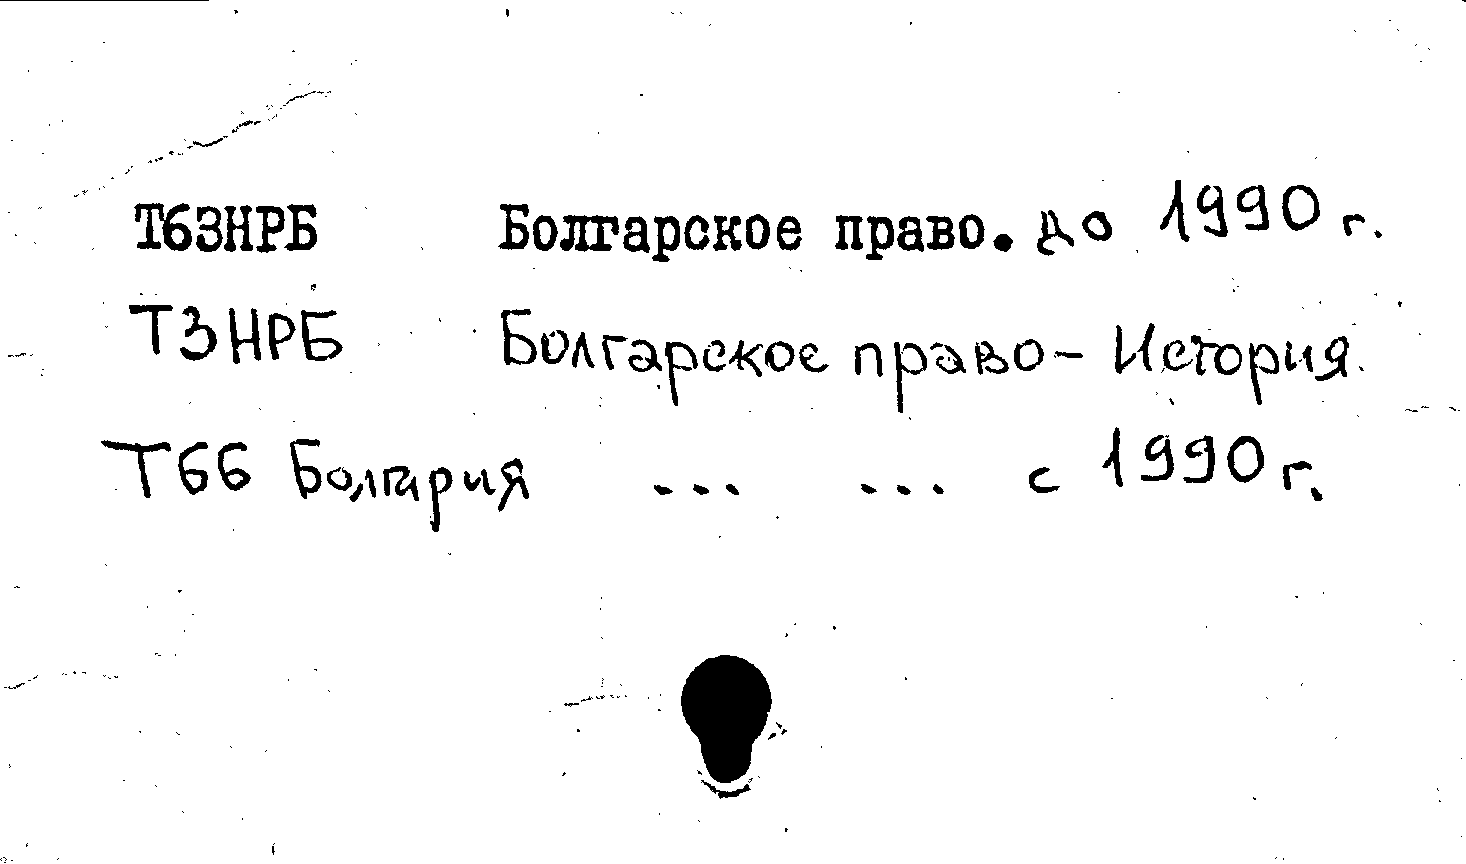 Т63НРБ Болгарское право. до 1990 г.
Т3НРБ Болгарское право - История.
Т66 Болгария ... ... с 1990 г.